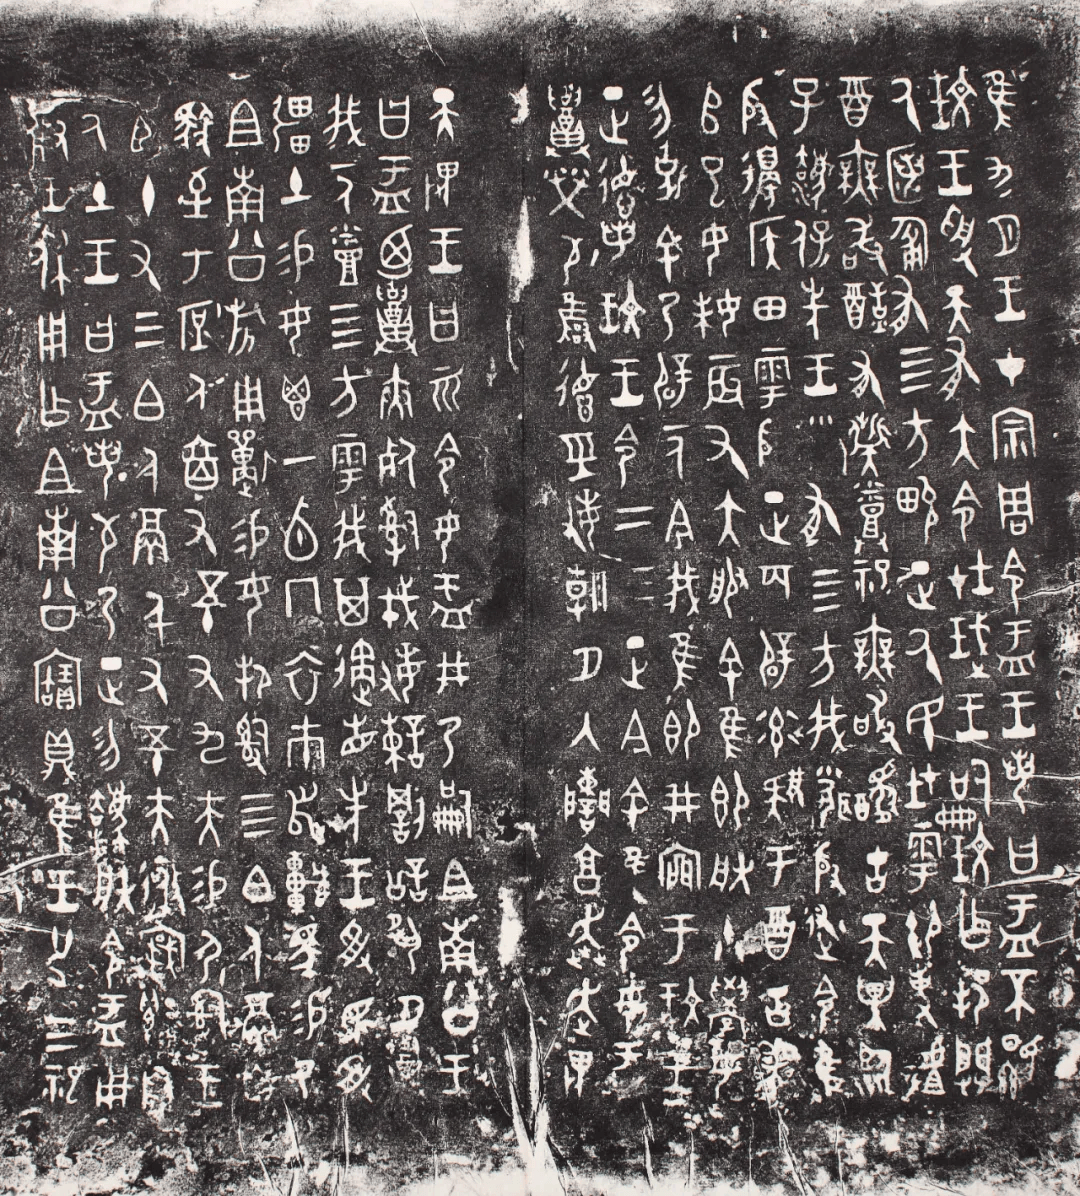 隹九月王才宗周令盂王若曰盂不顯
玟王受天有大令在珷王嗣玟乍邦闢
氒匿匍有四方畯正氒民在雩御事𠭯
酉無敢酖有髭烝祀無敢醻古天異臨
子灋保先王有四方我聞殷述令隹
殷邊侯田雩殷正百辟率肄于酉古喪
𠂤巳女妹辰又大服余隹即朕小學女
勿𠇾余乃辟一人今我隹即井㐭于玟王
正德若玟王令二三正今余隹令女盂
𥃝榮敬雝德巠敏朝夕入讕享奔走畏
天畏王曰𠀠令女盂井乃嗣且南公王
曰盂廼𥃝夾死𤔲戎敏諫罰訟夙夕𥃝
我一人烝四方雩我其遹省先王受民受
疆土易女鬯一卣冂衣巿舄車馬易乃
且南公旂用狩易女邦𤔲四白人鬲自
馭至于庶人六百又五十又九夫易尸𤔲王
臣十又三白人鬲千又五十夫遷自
氒土王曰盂若敬乃正勿灋朕令盂用
對王休用乍且南公寶鼎隹王廿又三祀